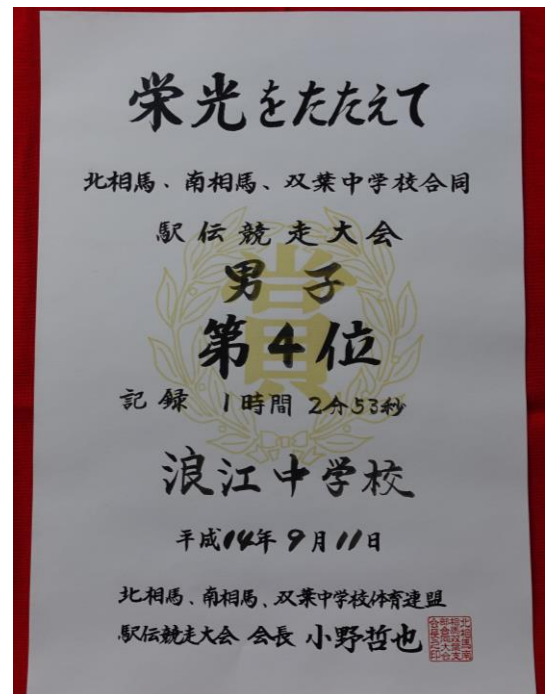 栄光をたたえて
北相馬、南相馬、双葉中学校合同
駅伝競走大会
賞
男子
第4位
記録 1時間 2分53秒
浪江中学校
平成14年9月11日
北相馬、南相馬、双葉中学校体育連盟
駅伝競走大会 会長 小野哲也